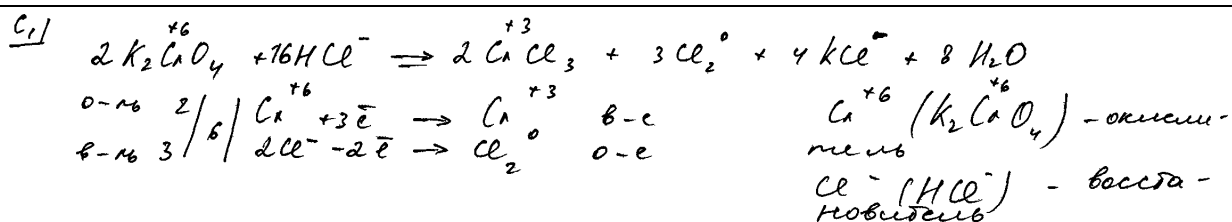 C1) 2K₂Cr⁺⁶O₄ + 16HCl⁻ = 2Cr⁺³Cl₃ + 3Cl₂⁰ + 4KCl⁻ + 8H₂O
о-ль 2 | 6 | Cr⁺⁶ + 3ē → Cr⁺³ в-е
в-ль 3 | 2Cl⁻ - 2ē → Cl₂⁰ о-е
Cr⁺⁶ (K₂Cr⁺⁶O₄) - окисли-
тель
Cl⁻ (HCl⁻) - восста-
новитель